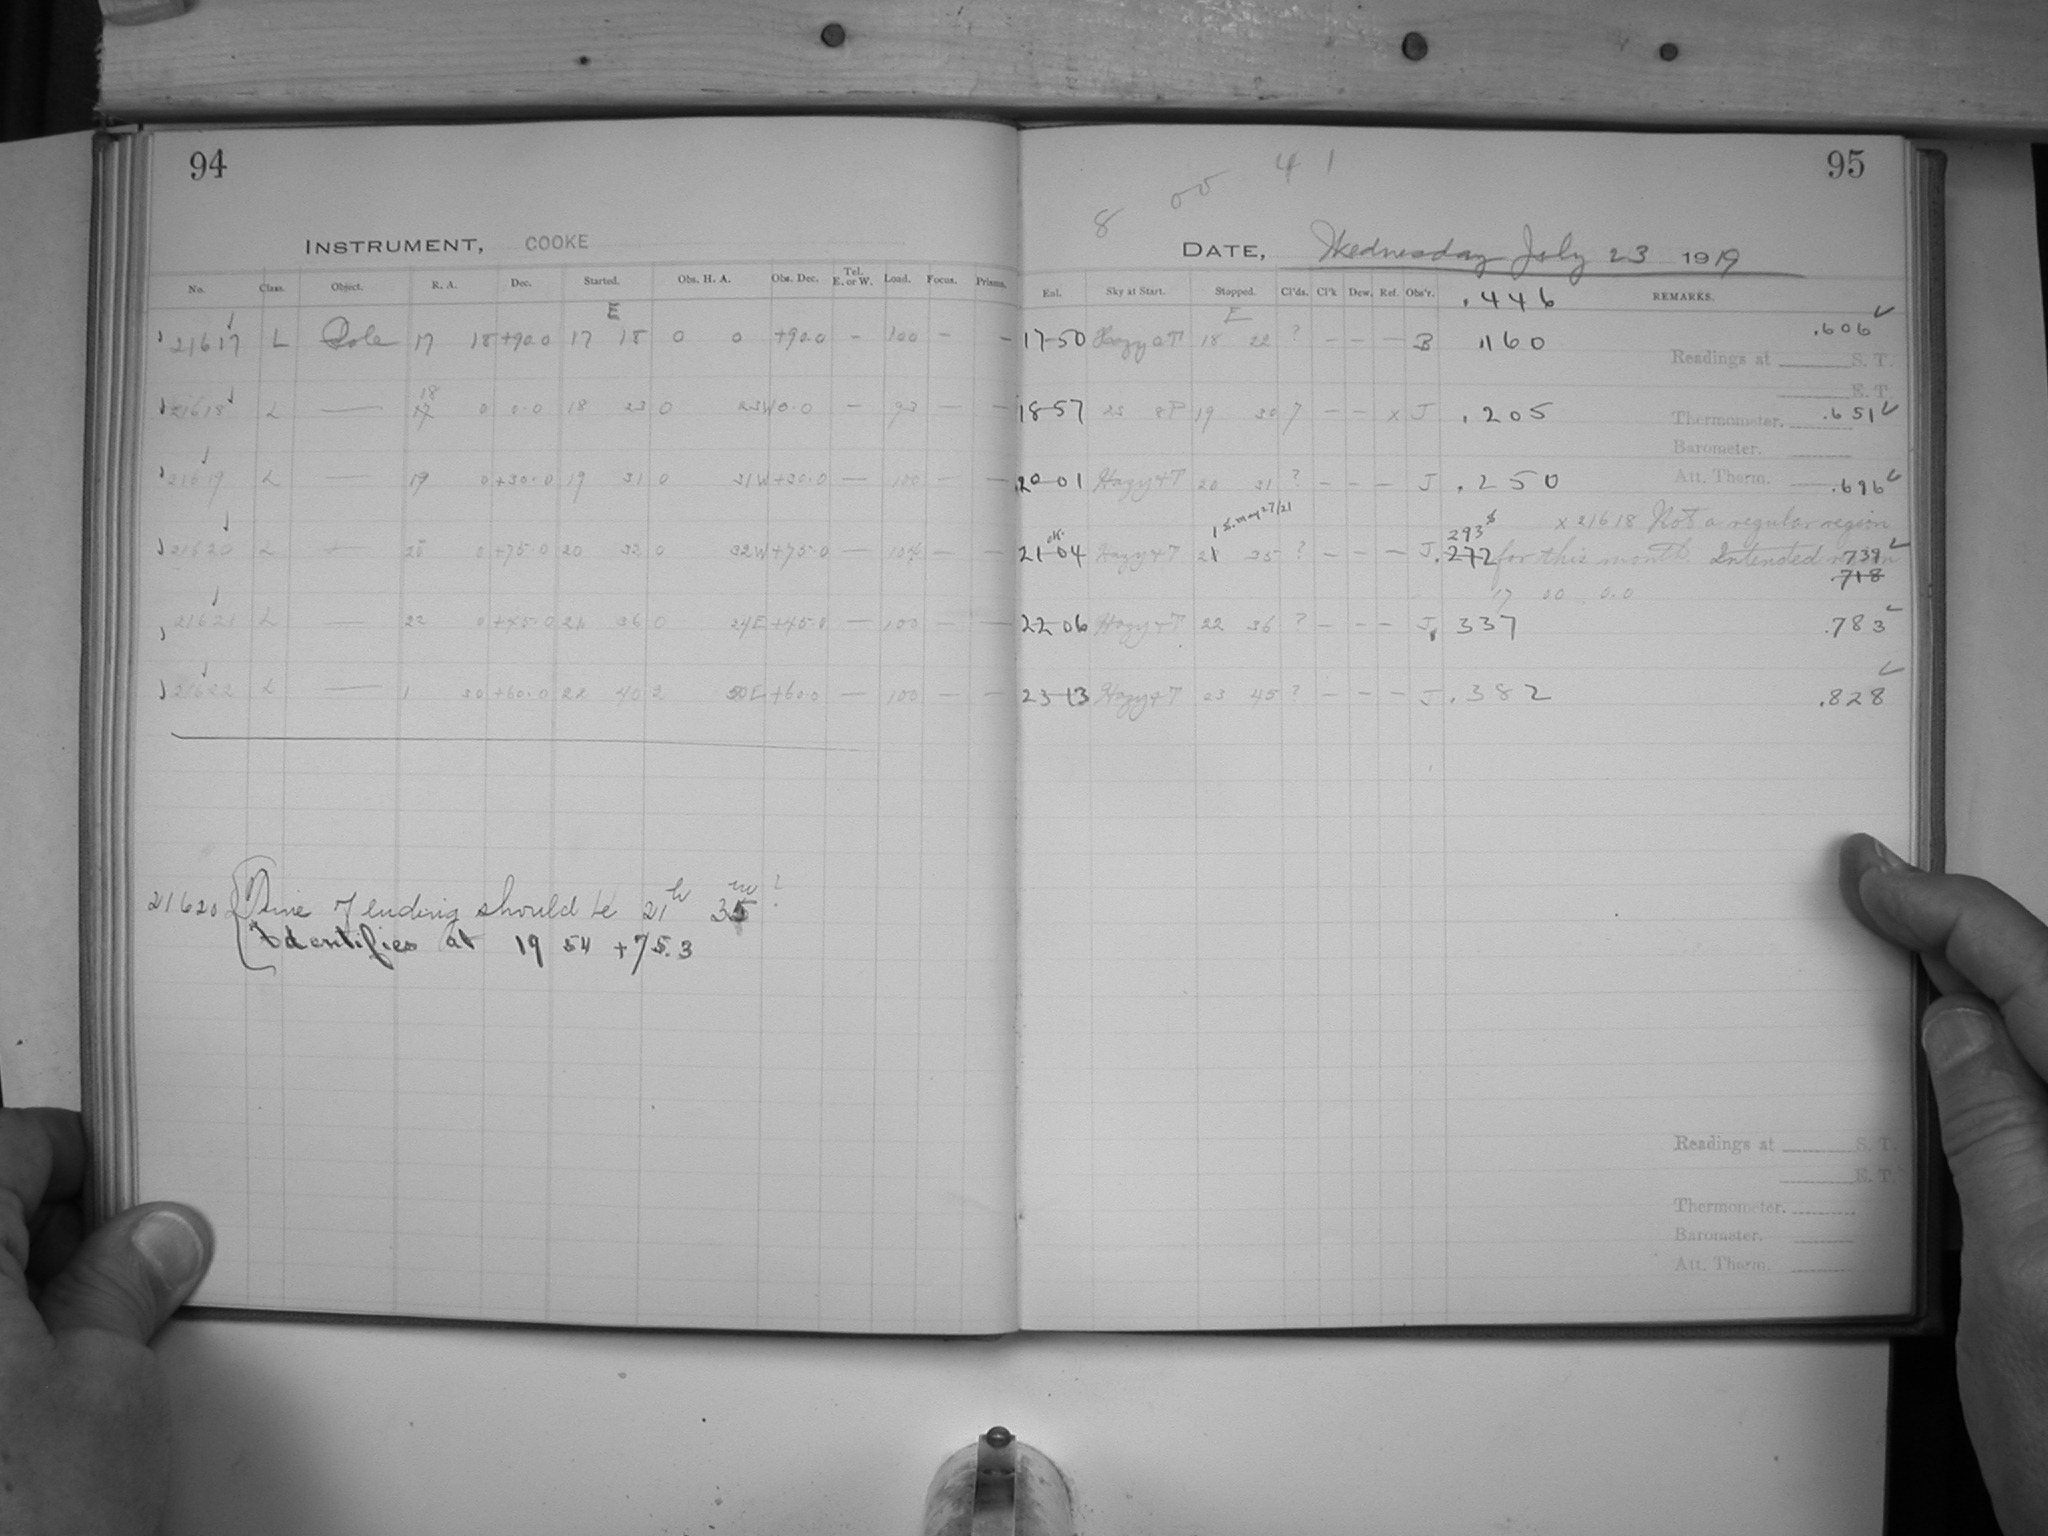 94
INSTRUMENT, COOKE
No. Class. Object. R. A. Dec. Started. Obs. H. A. Obs. Dec. Tel. E. or W. Load. Focus. Prisms.
E
21617 L Pole 17 18 +90.0 17 18 0 0 +90.0 - 100 - -
18
21618 L — 17 0 0.0 18 23 0 23W 0.0 - 93 - -
21619 L — 19 0 +30.0 19 31 0 31W +30.0 - 100 - -
21620 L — 20 0 +75.0 20 32 0 32W +75.0 - 104 - -
21621 L — 22 0 +45.0 21 36 0 24E +45.0 - 100 - -
21622 L — 1 30 +60.0 22 40 2 50E +60.0 - 100 - -
21620 { Time of ending should be 21h 35m ?
Identifies at 19 54 +75.3
95
8 00 41
DATE, Wednesday July 23 1919
Eql. Sky at Start. Stopped. Cl'ds. Cl'k Dew. Ref. Obs'r. .446 REMARKS.
E
17-50 Hazy 18 22 ? - - - B .160 .606
Readings at S. T.
E. T.
18-57 19 30 7 - - x J .205 .651
Thermometer.
Barometer.
20-01 Hazy +T 20 31 ? - - - J .250 .696
Att. Therm.
x 21618 Not a regular region
1 S. May 27/21
293
21-04 Hazy +T 21 35 ? - - - J .272 for this month. Intended region 739
718
17 00 0.0
22-06 Hazy +T 22 36 ? - - - J .337 .783
23-13 Hazy +T 23 45 ? - - - J .382 .828
Readings at S. T.
E. T.
Thermometer.
Barometer.
Att. Therm.